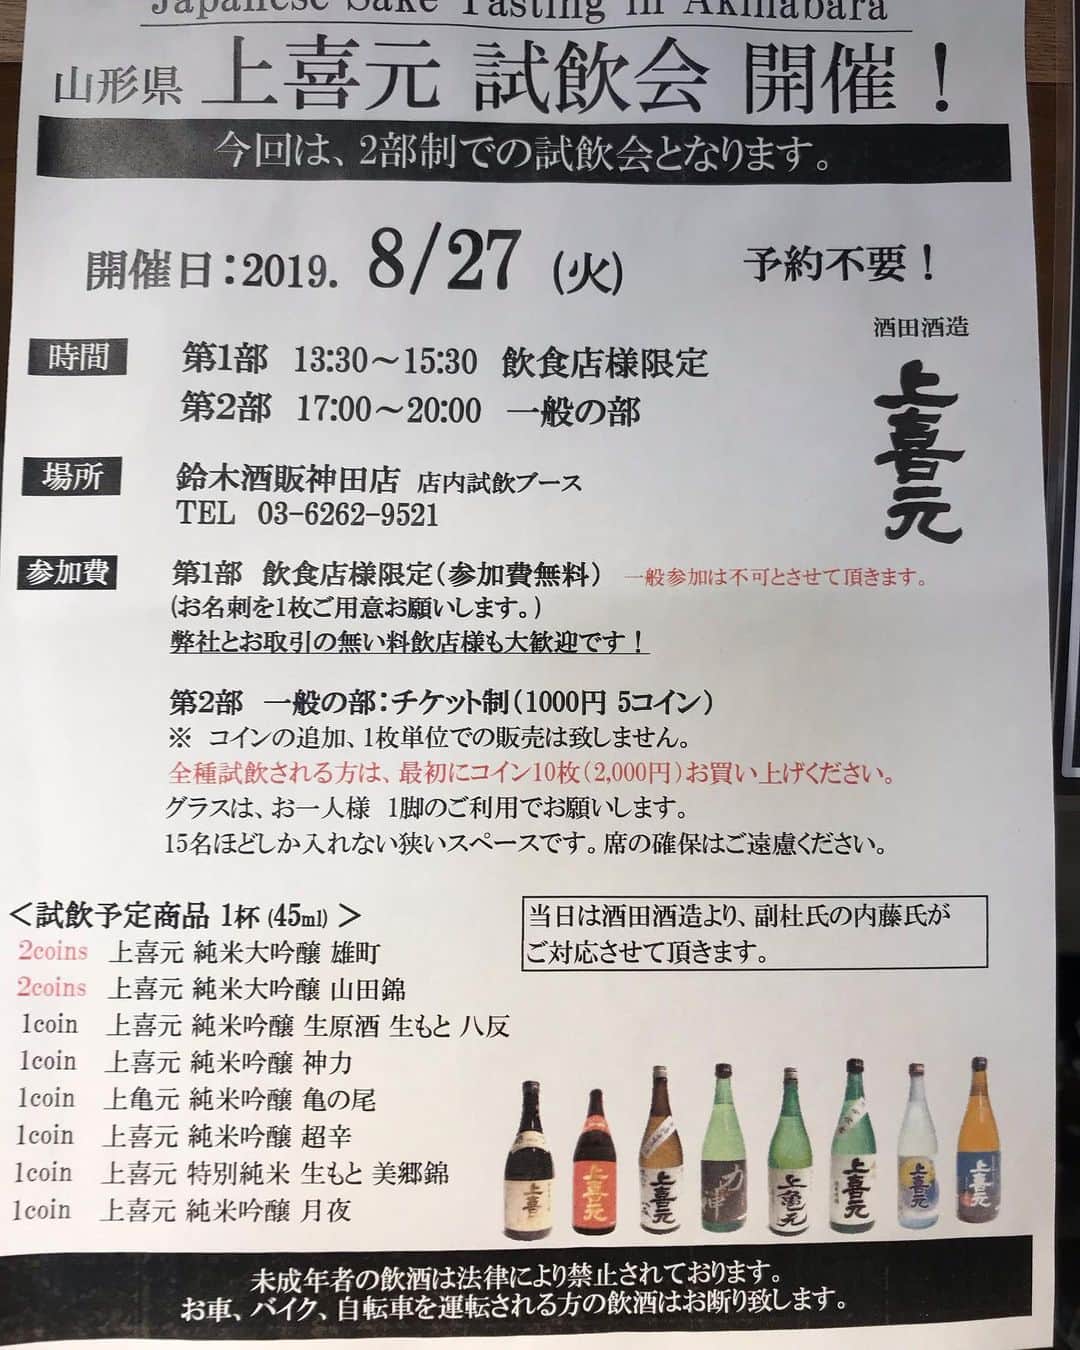 Japanese Sake Tasting in Akihabara
山形県 上喜元 試飲会 開催！
今回は、2部制での試飲会となります。
開催日：2019. 8/27 (火) 予約不要！
酒田酒造
上喜元
時間 第1部 13:30～15:30 飲食店様限定
第2部 17:00～20:00 一般の部
場所 鈴木酒販神田店 店内試飲ブース
TEL 03-6262-9521
参加費 第1部 飲食店様限定（参加費無料） 一般参加は不可とさせて頂きます。
(お名刺を1枚ご用意お願いします。)
弊社とお取引の無い料飲店様も大歓迎です！
第2部 一般の部：チケット制（1000円 5コイン）
※ コインの追加、1枚単位での販売は致しません。
全種試飲される方は、最初にコイン10枚（2,000円）お買い上げください。
グラスは、お一人様 1脚のご利用でお願いします。
15名ほどしか入れない狭いスペースです。席の確保はご遠慮ください。
＜試飲予定商品 1杯 (45ml) ＞
2coins 上喜元 純米大吟醸 雄町
2coins 上喜元 純米大吟醸 山田錦
1coin 上喜元 純米吟醸 生原酒 生もと 八反
1coin 上喜元 純米吟醸 神力
1coin 上亀元 純米吟醸 亀の尾
1coin 上喜元 純米吟醸 超辛
1coin 上喜元 特別純米 生もと 美郷錦
1coin 上喜元 純米吟醸 月夜
当日は酒田酒造より、副杜氏の内藤氏が
ご対応させて頂きます。
上喜
上喜元
上喜元
力神
上亀元
上喜元
上喜元
上喜元
未成年者の飲酒は法律により禁止されております。
お車、バイク、自転車を運転される方の飲酒はお断り致します。